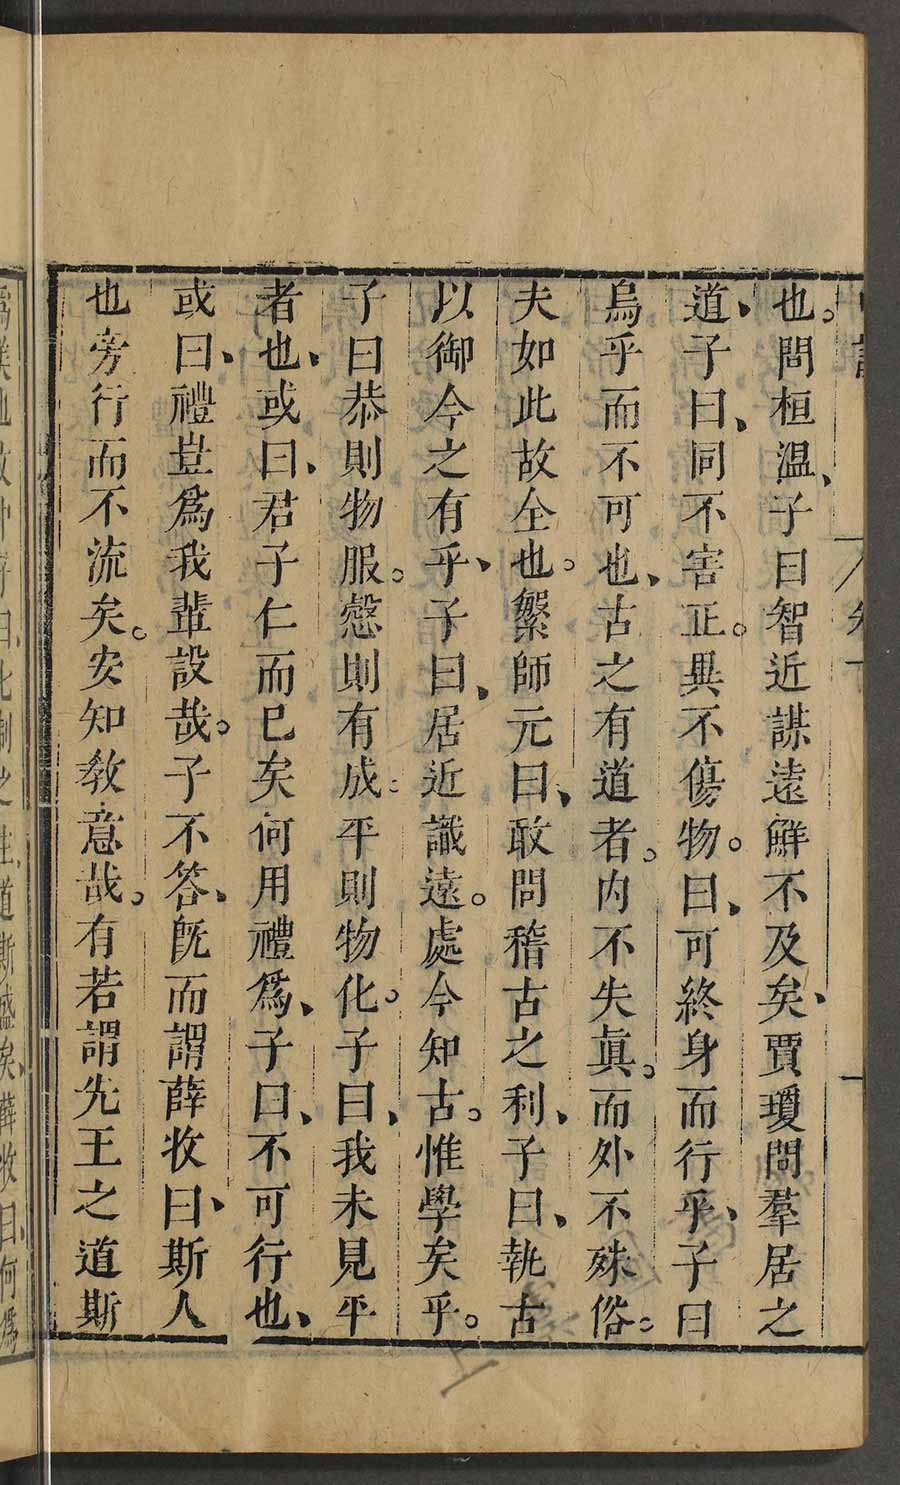 也。問桓溫、子曰智近謀遠鮮不及矣、賈瓊問羣居之
道、子曰、同不害正。異不傷物。曰、可終身而行乎、子曰
烏乎而不可也、古之有道者。内不失眞。而外不殊俗。
夫如此故全也。繁師元曰、敢問稽古之利、子曰、執古
以御今之有乎、子曰、居近識遠。處今知古。惟學矣乎。
子曰恭則物服。愨則有成。平則物化。子曰、我未見平
者也、或曰、君子仁而已矣何用禮爲、子曰、不可行也、
或曰、禮豈爲我輩設哉。子不答、旣而謂薛收曰、斯人
也旁行而不流矣。安知敎意哉。有若謂先王之道斯